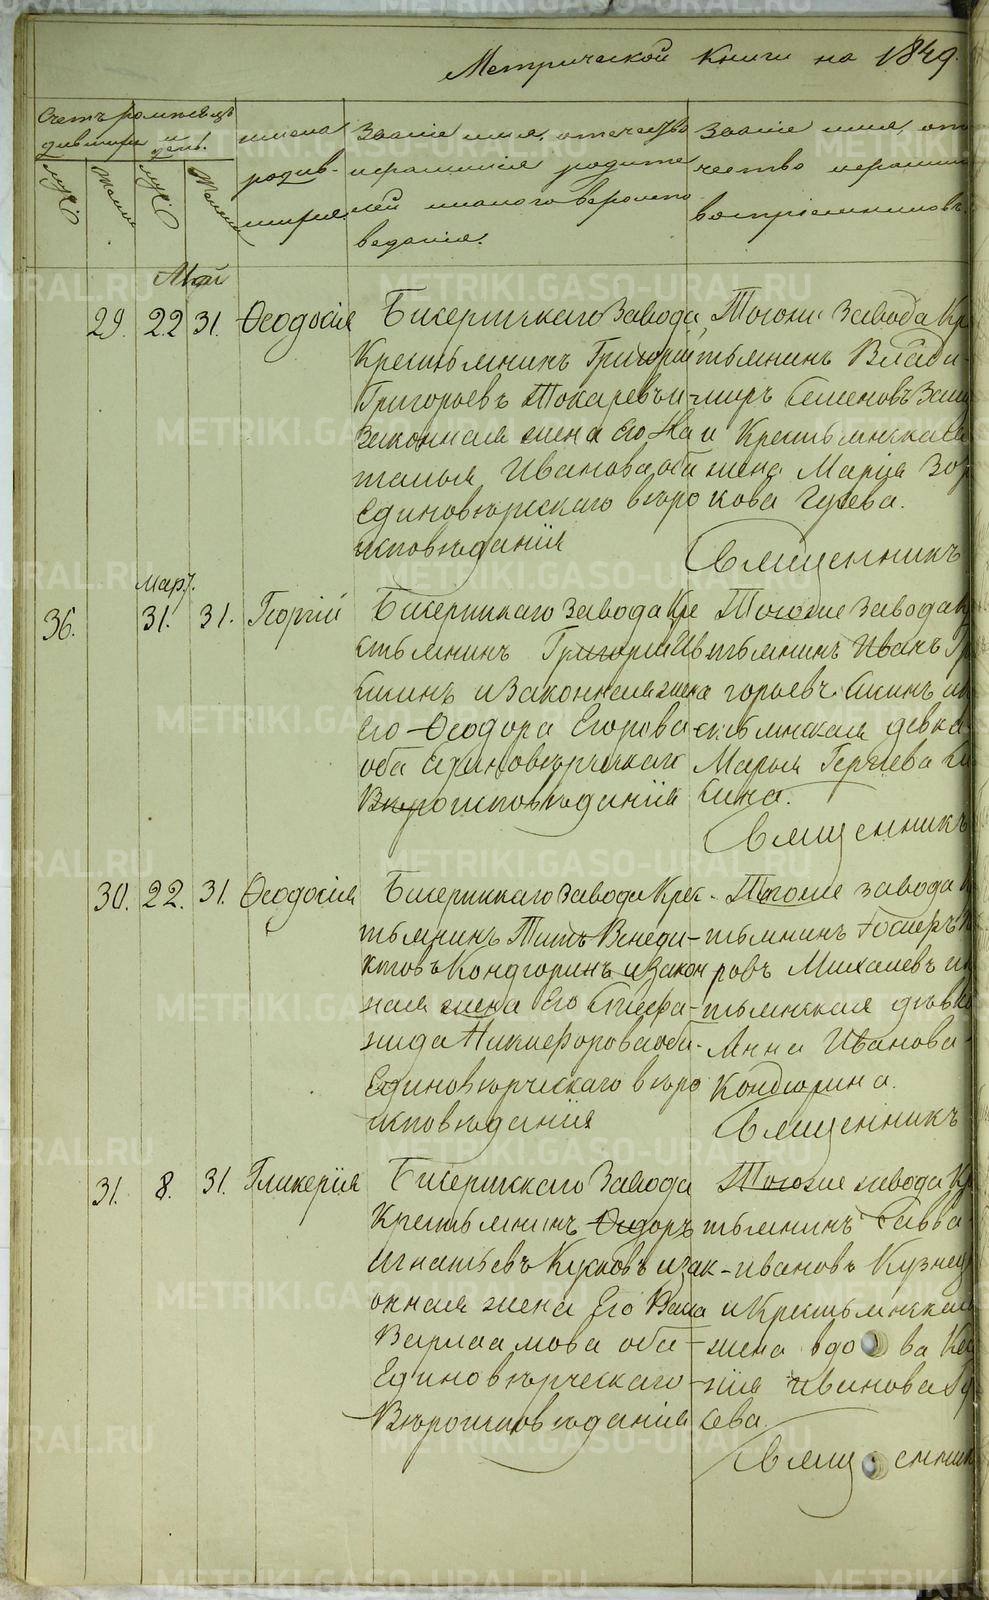 Метрической Книги на 1849.
Счетъ родившихъ
муж: женск муж: женск
имена
родив-
шихся
Званіе имя, отечество
и фамилія родите
лей и какого вероиспо
веданія.
Званіе имя, от
чество и фамил
воспріемниковъ.
Май
29. 22 31. Ѳеодосія
Бисертскаго Завода
Крестьянинъ Григорій
Григорьевъ Токаревъ и
Законная жена Его На
талья Иванова оба
Единовѣрческаго вѣро
исповѣданія
Тогоже Завода Кр
тьянинъ Влади-
миръ Семеновъ
и Крестьянская
жена Марія
кова Гусева.
Священникъ
Мар.
36. 31. 31. Георгій
Бисертскаго Завода Кре
стьянинъ Григорій
и Законная жена
Его Ѳеодора Егорова
оба Единовѣрческаго
Вѣроисповѣданія
Тогоже Завода К
тьянинъ Иванъ Гр
горьевъ
стьянская девка
Марья Гергиева
Священникъ
30. 22. 31. Ѳеодосія
Бисертскаго Завода Крес-
тьянинъ Титъ Венеди-
ктовъ Кондюринъ и Закон
ная жена Его Степа-
нида Никифорова оба
Единовѣрческаго вѣро
исповѣданія
Тогоже завода К
тьянинъ
ровъ Михалевъ и
тьянская дѣвка
Анна Иванова
Кондюрина.
Священникъ
31. 8. 31. Гликерія
Бисертскаго Завода
Крестьянинъ Ѳедоръ
Игнатьевъ Кусковъ и зак-
онная жена Его Васса
Варлаамова оба
Единовѣрческаго
Вѣроисповѣданія
Тогоже завода Кр
тьянинъ Савва
Ивановъ Кузнец
и Крестьянская
жена вдова Ксе
нія Иванова
сева.
Священник
METRIKI.GASO-URAL.RU